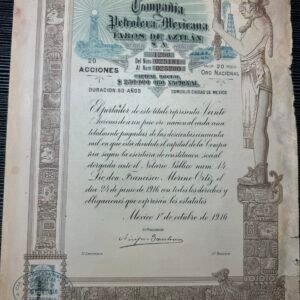 Compañia
Petrolera Mexicana
FAROS DE AZTLÁN
S. A.
20
ACCIONES
1260
Del Núm. 025181
Al Núm. 025200
CAPITAL SOCIAL
ORO NACIONAL
20
ORO NACIONAL
DURACION 50 AÑOS
DOMICILIO CIUDAD DE MEXICO
El portador de este título representa Veinte
Acciones de a un peso oro nacional cada una
totalmente pagadas de las doscientas cincuenta
mil en que está dividido el capital de la Compa-
ñía según la escritura de constitución social
otorgada ante el Notario Público núm. 14
Lic. don Francisco Moreno Ortiz, el
dia 24 de junio de 1916 con todos los derechos y
obligaciones que expresan los estatutos.
Mexico 1º de octubre de 1916
El Presidente
El Comisario
El Tesorero